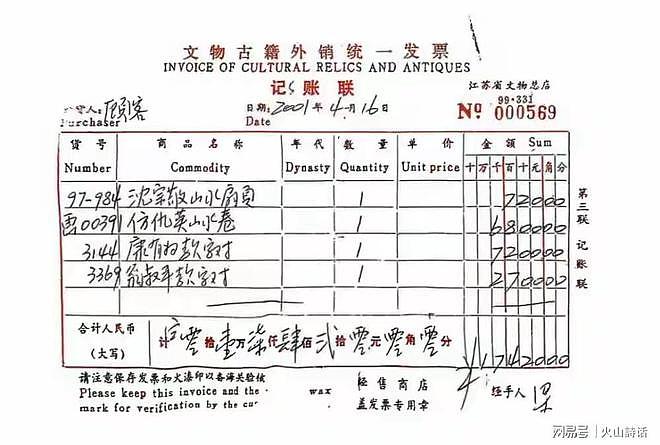 文物古籍外销统一发票
INVOICE OF CULTURAL RELICS AND ANTIQUES
记账联
江苏省文物总店
99·331
顾客
Purchaser
日期: 2001年4月16日
Date
Nº 000569
货号 商品名称 年代 数量 单价 金额 Sum
Number Commodity Dynasty Quantity Unit price 十万千百十元角分
97-984 沈宗敬山水扇页 1 72000
00391 仿仇英山水卷 1 680000
3144 康有为款字对 1 720000
3369 翁叔平款字对 1 270000
合计人民币
(大写)
计 零拾壹万柒仟肆佰弍拾零元零角零分 ¥1742000
第三联 记账联
请注意保存发票和火漆印以备海关验核
Please keep this invoice and the wax
mark for verification by the
经售商店
盖发票专用章
经手人 梁
网易号 | 火山诗话